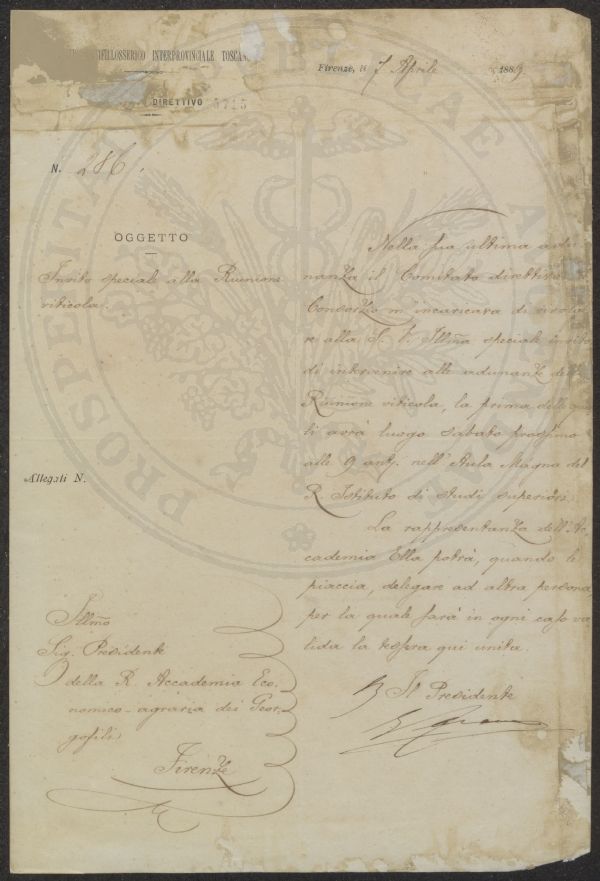 FILLOSSERICO INTERPROVINCIALE TOSCAN
DIRETTIVO 5715
Firenze, li 7 Aprile 1889
N. 286.
OGGETTO
Invito speciale alla Riunione
viticola.
Allegati N.
Nella sua ultima adu-
nanza il Comitato direttivo
Consorzio m'incaricava di
re alla S. V. Illma speciale invito
di intervenire alle adunanze della
Riunione viticola, la prima delle qua
li avrà luogo sabato prossimo
alle 9 ant. nell'Aula Magna del
R. Istituto di studi superiori.
La rappresentanza dell'Ac
cademia Ella potrà, quando le
piaccia, delegare ad altra persona,
per la quale sarà in ogni caso va
lida la tessera qui unita.
Il Presidente
Illmo
Sig. Presidente
della R. Accademia Eco-
nomico-agraria dei Geor-
gofili
Firenze
PROSPERITA PUBLICAE